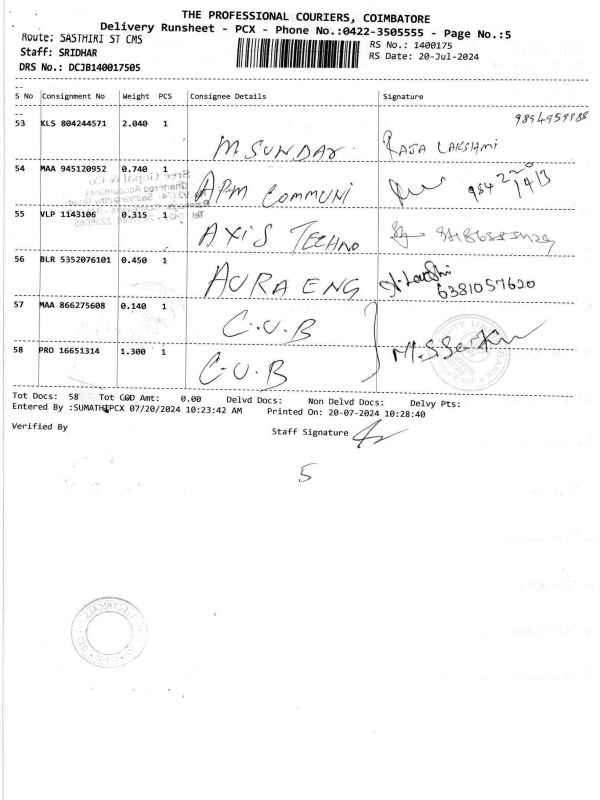 THE PROFESSIONAL COURIERS, COIMBATORE
Delivery Runsheet - PCX - Phone No.:0422-3505555 - Page No.:5
Route: SASTHIRI ST CMS
RS No.: 1400175
Staff: SRIDHAR
RS Date: 20-Jul-2024
DRS No.: DCJB140017505
S No Consignment No Weight PCS Consignee Details Signature
53 KLS 804244571 2.040 1 M. SUNDAR RAJA LAKSHMI
54 MAA 945120952 0.740 1 APM COMMUNI
55 VLP 1143106 0.315 1 AXIS TECHNO
56 BLR 5352076101 0.450 1 AURA ENG 6381057620
57 MAA 866275608 0.140 1 C.U.B
58 PRO 16651314 1.300 1 C.U.B
Tot Docs: 58 Tot COD Amt: 0.00 Delvd Docs: Non Delvd Docs: Delvy Pts:
Entered By :SUMATHIPCX 07/20/2024 10:23:42 AM Printed On: 20-07-2024 10:28:40
Verified By
Staff Signature
5